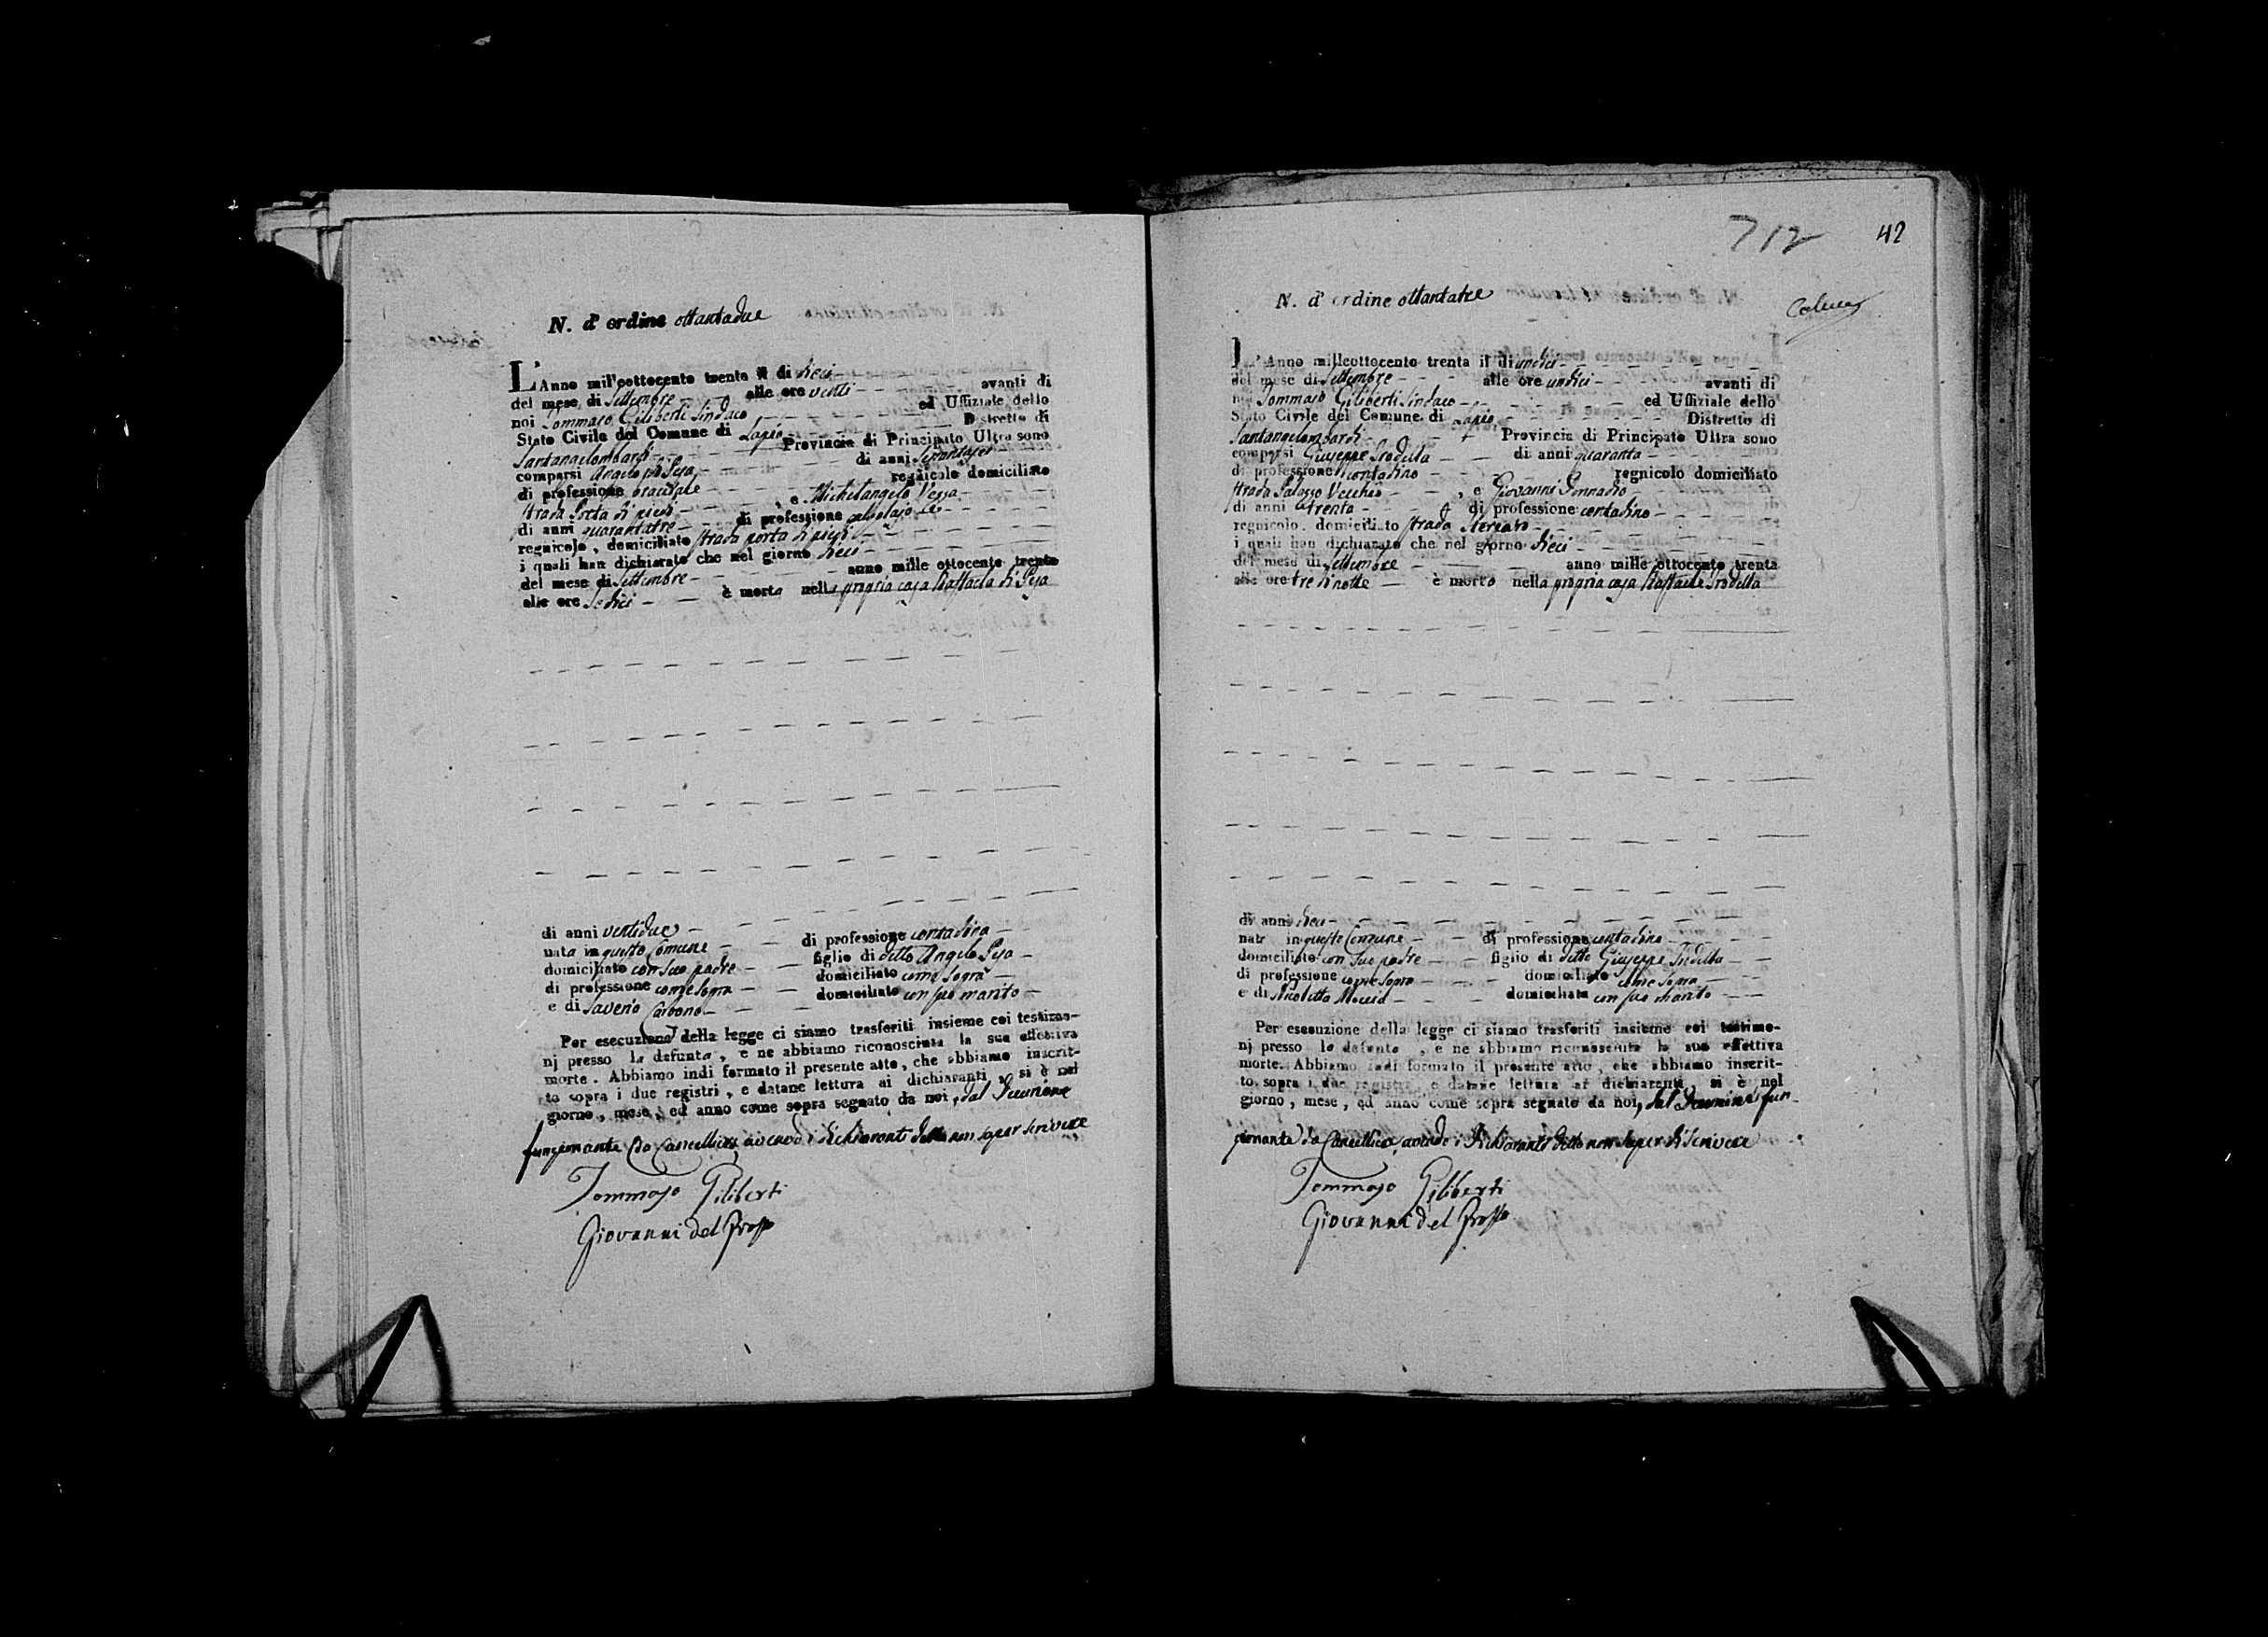 N. d'ordine ottantadue
L'Anno mill'eottocento trenta il di dieci
del mese di Settembre alle ore venti avanti di
noi Tommaso Giliberti Sindaco ed Uffiziale dello
Stato Civile del Comune di Lapio Distretto di
Santangelombardi Provincia di Principato Ultra sono
comparsi Angelo di anni
di professione bracciale regnicolo domiciliato
strada Porta di e Michelangelo
di anni quarantatre di professione
regnicolo, domiciliato strada porta di
i quali han dichiarato che nel giorno dieci
del mese di Settembre anno mille ottocento trenta
alle ore Sedici è morta nella propria casa Raffaela di
di anni ventidue
nata in questo Comune di professione contadina
domiciliato con suo padre figlio di detto Angelo
di professione come sopra domiciliato come sopra
e di Saveria Carbone domiciliato con suo marito
Per esecuzione della legge ci siamo trasferiti insieme coi testimo-
nj presso la defunta, e ne abbiamo riconosciuta la sua effettiva
morte. Abbiamo indi formato il presente atto, che abbiamo inscrit-
to sopra i due registri, e datane lettura ai dichiaranti, si è nel
giorno, mese, ed anno come sopra segnato da noi, dal Decurione
funzionante da Cancelliere, avendo i dichiaranti detto non saper scrivere
Tommaso Giliberti
Giovanni del Grosso
712 42
N. d'ordine ottantatre
L'Anno milleottocento trenta il di undici
del mese di Settembre alle ore undici avanti di
noi Tommaso Giliberti Sindaco ed Uffiziale dello
Stato Civile del Comune di Lapio Distretto di
Santangelombardi Provincia di Principato Ultra sono
comparsi Giuseppe di anni quaranta
di professione contadino regnicolo domiciliato
strada Palazzo Vecchio, e Giovanni
di anni trenta di professione contadino
regnicolo, domiciliato strada
i quali han dichiarato che nel giorno dieci
del mese di Settembre anno mille ottocento trenta
alle ore tre di notte è morto nella propria casa Raffaele
di anni dieci
nato in questo Comune di professione contadino
domiciliato con suo padre figlio di detto Giuseppe
di professione come sopra domiciliato come sopra
e di Nicoletta domiciliata con suo marito
Per esecuzione della legge ci siamo trasferiti insieme coi testimo-
nj presso lo defunto, e ne abbiamo riconosciuta la sua effettiva
morte. Abbiamo indi formato il presente atto, che abbiamo inscrit-
to sopra i due registri, e datane lettura ai dichiaranti, si è nel
giorno, mese, ed anno come sopra segnato da noi, dal Decurione fun-
zionante da Cancelliere, avendo i dichiaranti detto non saper di scrivere
Tommaso Giliberti
Giovanni del Grosso